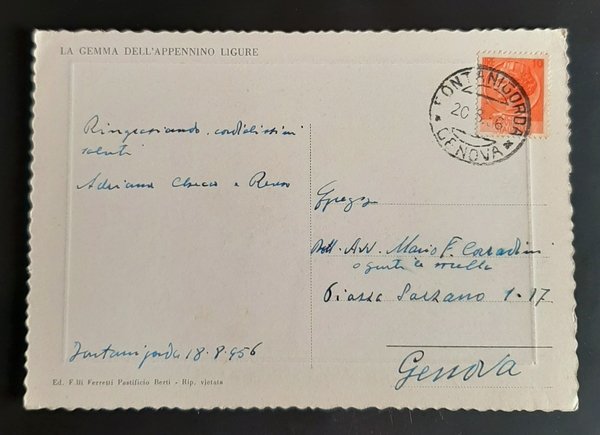 LA GEMMA DELL'APPENNINO LIGURE
10
FONTANIGORDA
20.8.56
GENOVA
Ringraziando, cordialissimi
saluti
Adriana Checco e Renzo
Dott. Avv. Mario F.
e gentile
Piazza Sarzano 1-17
Genova
Fontanigorda 18.8.956
Ed. F.lli Ferretti Pastificio Berti - Rip. vietata